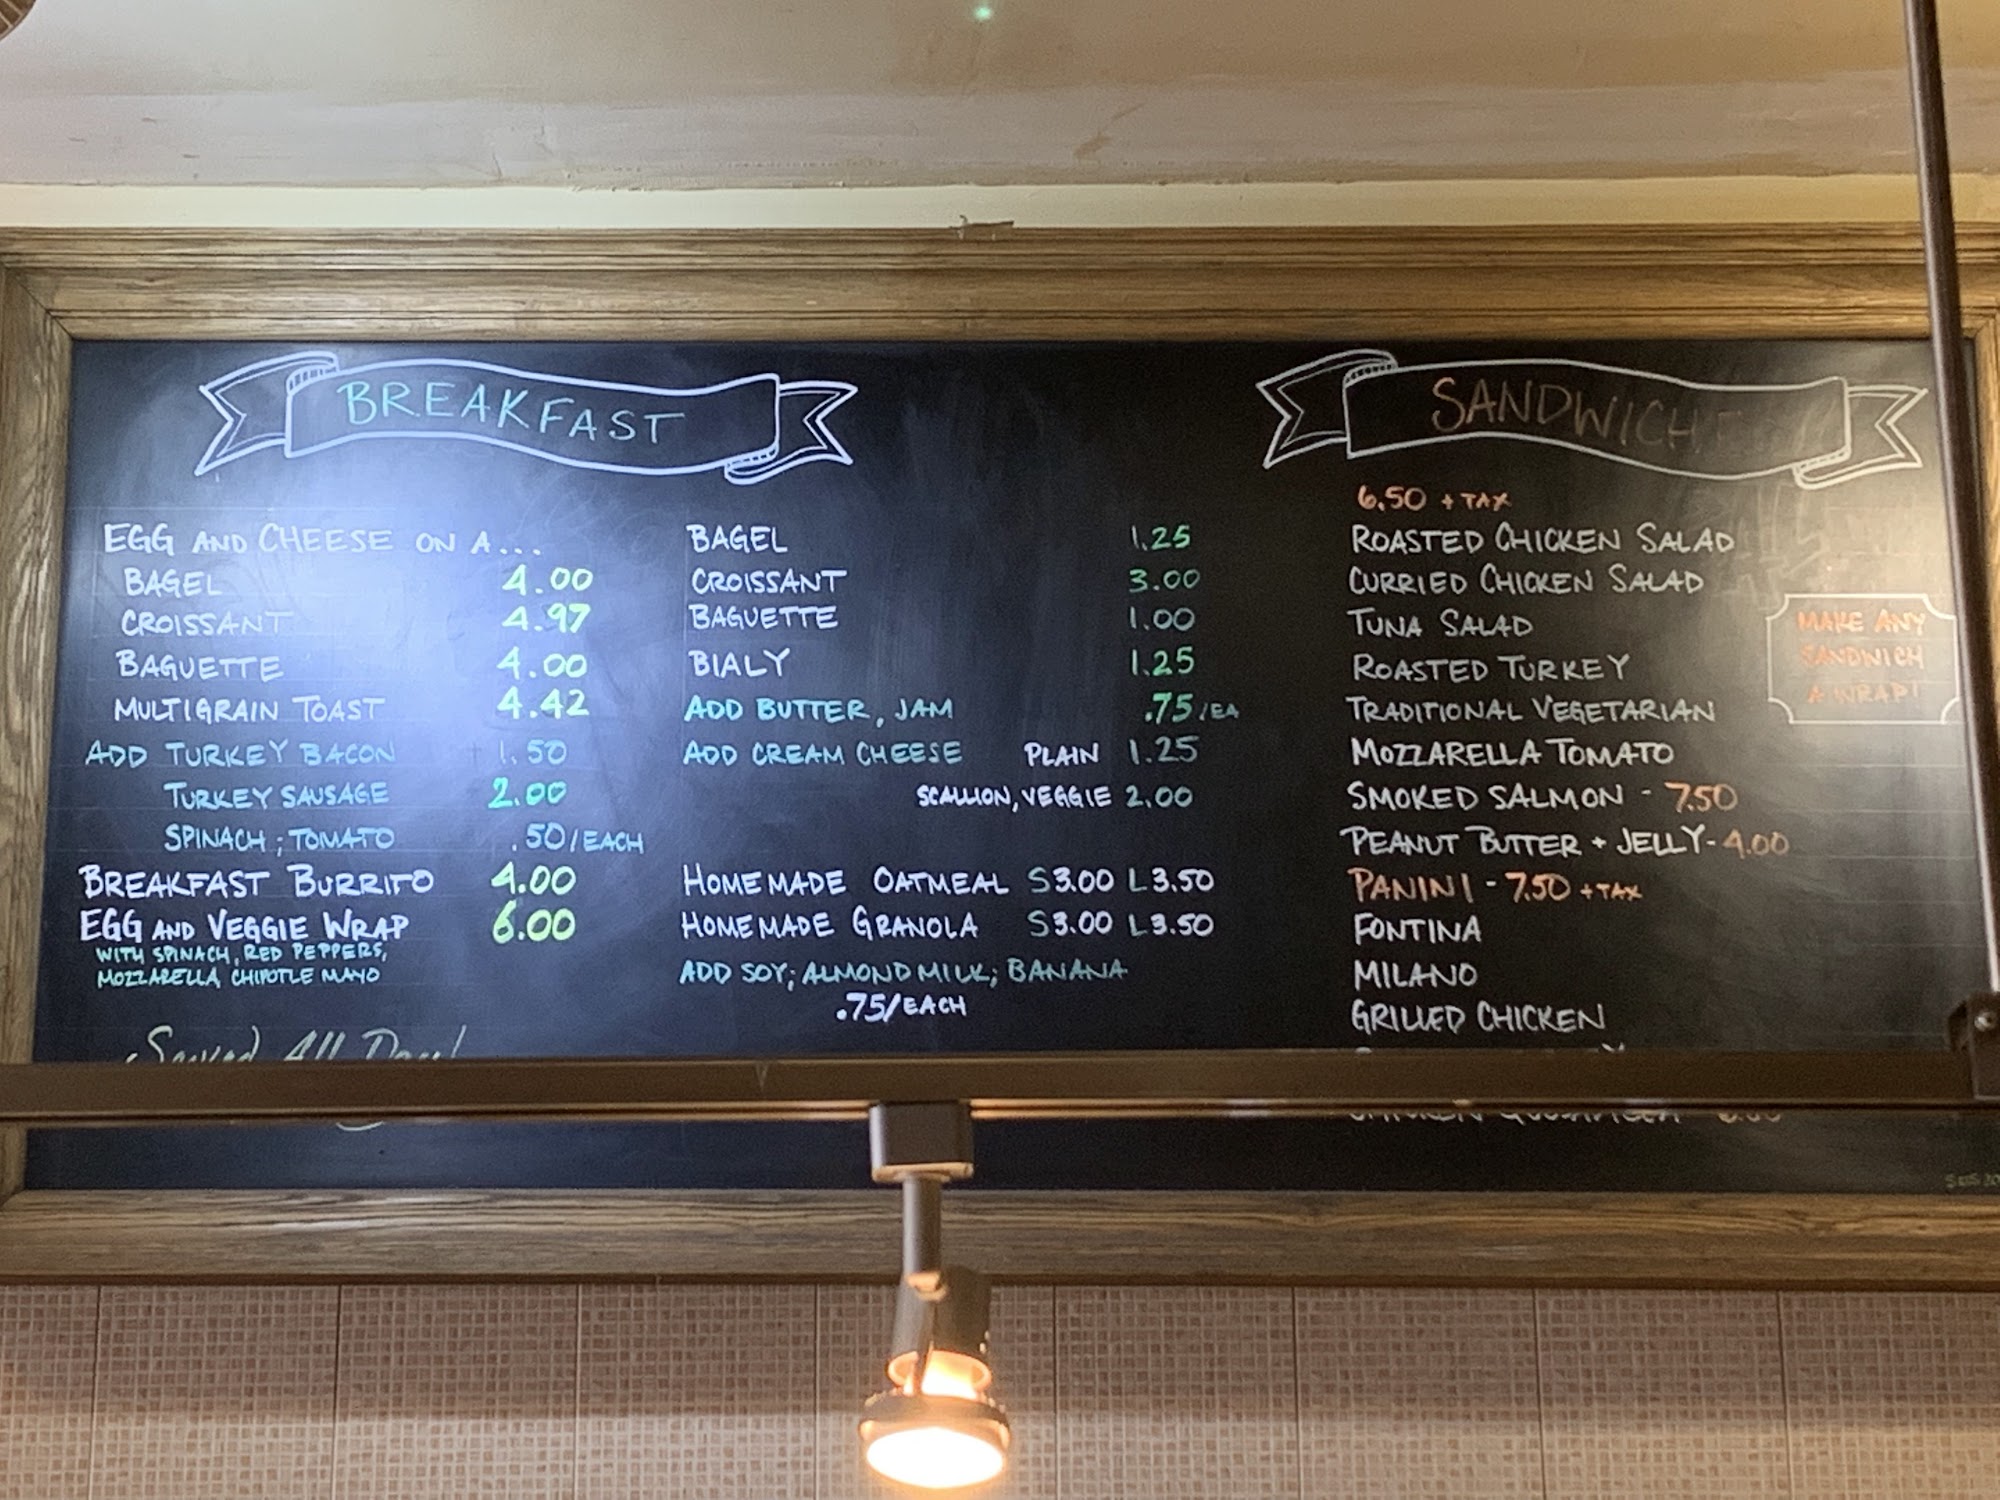 BREAKFAST
EGG AND CHEESE ON A...
BAGEL 4.00
CROISSANT 4.97
BAGUETTE 4.00
MULTIGRAIN TOAST 4.42
ADD TURKEY BACON 1.50
TURKEY SAUSAGE 2.00
SPINACH; TOMATO .50/EACH
BREAKFAST BURRITO 4.00
EGG AND VEGGIE WRAP 6.00
WITH SPINACH, RED PEPPERS,
MOZZARELLA, CHIPOTLE MAYO
Served All Day!
BAGEL 1.25
CROISSANT 3.00
BAGUETTE 1.00
BIALY 1.25
ADD BUTTER, JAM .75/EA
ADD CREAM CHEESE PLAIN 1.25
SCALLION, VEGGIE 2.00
HOMEMADE OATMEAL S 3.00 L 3.50
HOMEMADE GRANOLA S 3.00 L 3.50
ADD SOY; ALMOND MILK; BANANA
.75/EACH
SANDWICHE
6.50 + TAX
ROASTED CHICKEN SALAD
CURRIED CHICKEN SALAD
TUNA SALAD
ROASTED TURKEY
TRADITIONAL VEGETARIAN
MOZZARELLA TOMATO
SMOKED SALMON - 7.50
PEANUT BUTTER + JELLY - 4.00
PANINI - 7.50 + TAX
FONTINA
MILANO
GRILLED CHICKEN
MAKE ANY
SANDWICH
A WRAP!